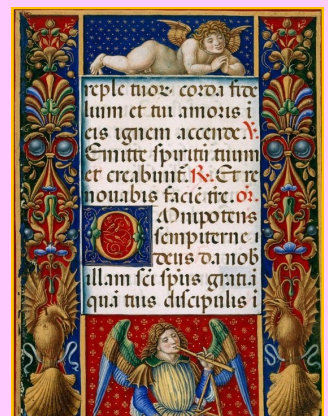 reple tuoꝝ corda fide
lium et tui amoris i
eis ignem accende V.
Emitte spirituʒ tuum
et creabunt̃. R. Et re
nouabis faciē tre. or.
Omnipotens
sempiterne
deus da nob
illam sci sp̃us gratiā
quā tuis discipulis i